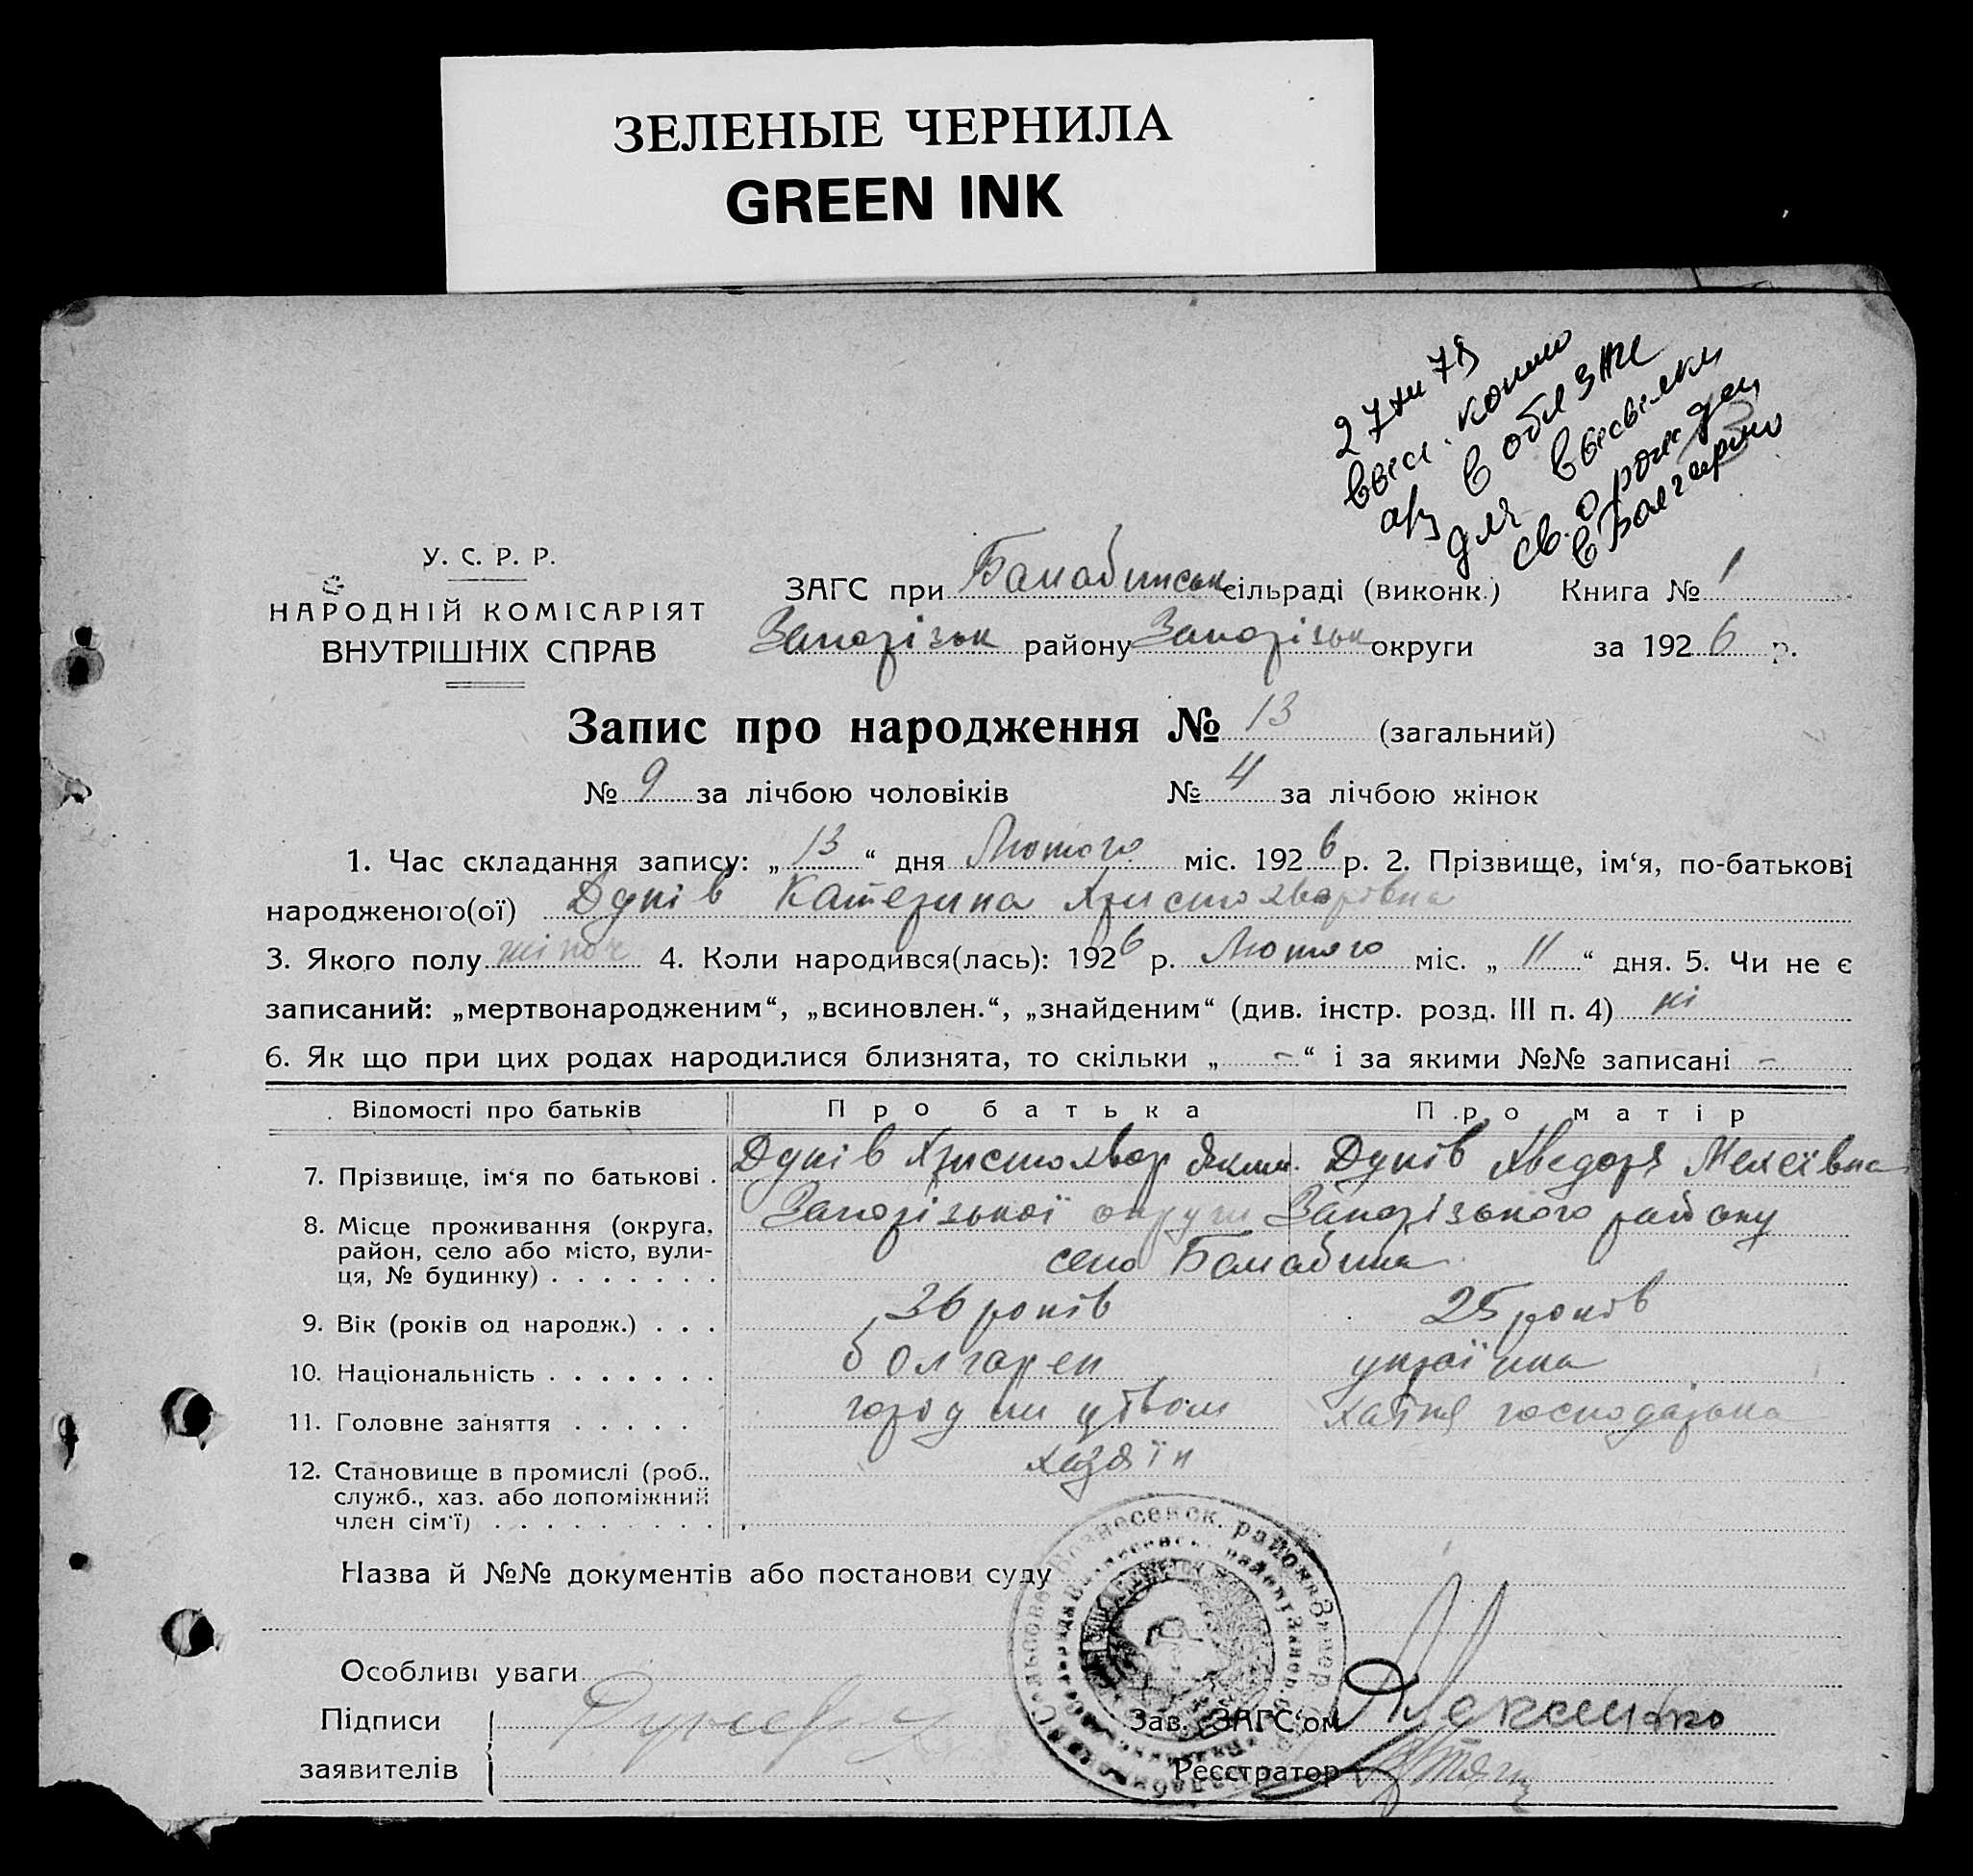 ЗЕЛЕНЫЕ ЧЕРНИЛА
GREEN INK
выс. копию
в обл ЗАГС
для высылки
св. о рожден
в Болгарию
У. С. Р. Р.
НАРОДНІЙ КОМІСАРІЯТ
ВНУТРІШНІХ СПРАВ
ЗАГС при Балабинськ сільраді (виконк.) Книга № 1
Запорізьк району Запорізьк округи за 1926 р.
Запис про народження № 13 (загальний)
№ 9 за лічбою чоловіків № 4 за лічбою жінок
1. Час складання запису: „13“ дня Лютого міс. 1926 р. 2. Прізвище, ім‘я, по-батькові
народженого(ої) Дунів Катерина Христохварівна
3. Якого полу жіноч 4. Коли народився(лась): 1926 р. Лютого міс. „11“ дня. 5. Чи не є
записаний: „мертвонародженим“, „всиновлен.“, „знайденим“ (див. інстр. розд. III п. 4) ні
6. Як що при цих родах народилися близнята, то скільки „ - “ і за якими №№ записані -
Відомості про батьків Про батька Про матір
7. Прізвище, ім‘я по батькові . Дунів Христохвар Дунів Хведоря Мекеївна
8. Місце проживання (округа, Запорізької округи Запорізького району
район, село або місто, вули-
ця, № будинку) . . . . . . . село Балабине
9. Вік (років од народж.) . . . 36 років 25 років
10. Національність . . . . . . . болгарец українка
11. Головне заняття . . . . . городництвом хатня господарька
12. Становище в промислі (роб., хазяїн
служб., хаз. або допоміжний
член сім‘ї) . . . . . . . . . .
Назва й №№ документів або постанови суду
Особливі уваги
Підписи Зав. ЗАГС‘ом
заявителів Реєстратор